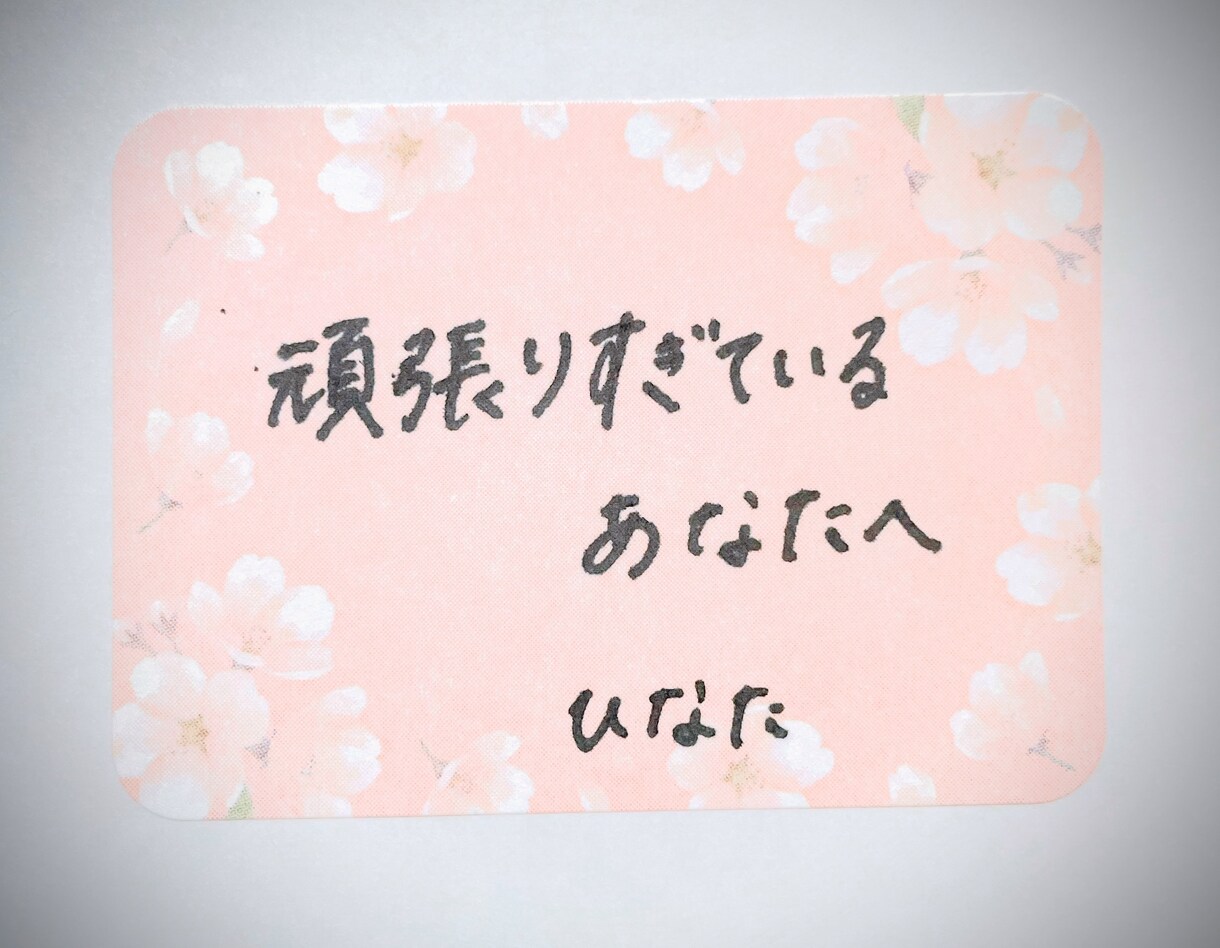 頑張りすぎている
あなたへ
ひなた